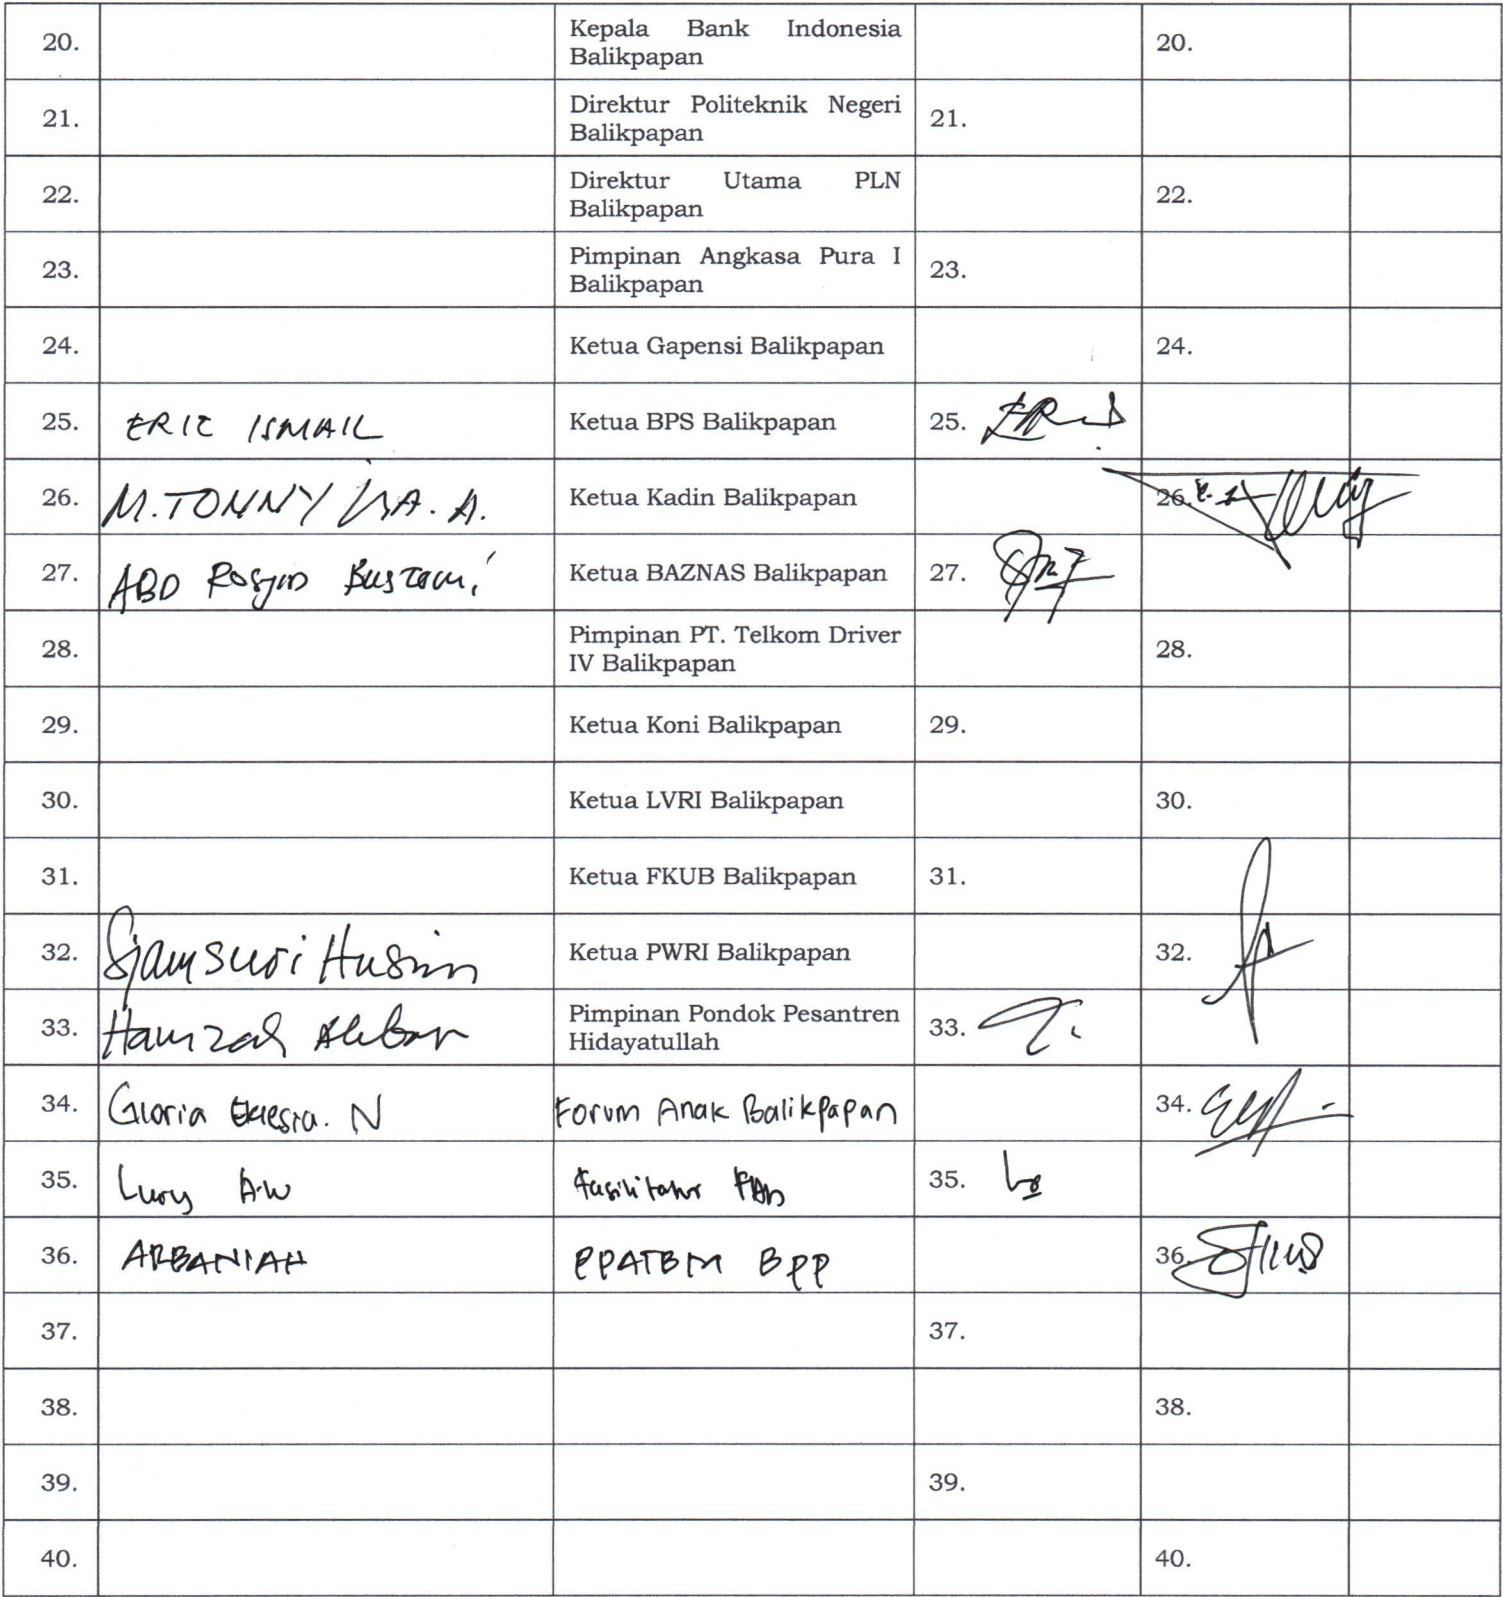 20. Kepala Bank Indonesia 20.
Balikpapan
21. Direktur Politeknik Negeri 21.
Balikpapan
22. Direktur Utama PLN 22.
Balikpapan
23. Pimpinan Angkasa Pura I 23.
Balikpapan
24. Ketua Gapensi Balikpapan 24.
25. ERIC ISMAIL Ketua BPS Balikpapan 25.
26. M. TONNY A. Ketua Kadin Balikpapan 26.
27. ABD Rosyid Bustomi Ketua BAZNAS Balikpapan 27.
28. Pimpinan PT. Telkom Driver 28.
IV Balikpapan
29. Ketua Koni Balikpapan 29.
30. Ketua LVRI Balikpapan 30.
31. Ketua FKUB Balikpapan 31.
32. Sjamsuri Husin Ketua PWRI Balikpapan 32.
33. Hamzah Akbar Pimpinan Pondok Pesantren 33.
Hidayatullah
34. Gloria Eklesia. N Forum Anak Balikpapan 34.
35. A.W Fasilitator 35.
36. ARBANIAH PPATBM BPP 36.
37. 37.
38. 38.
39. 39.
40. 40.